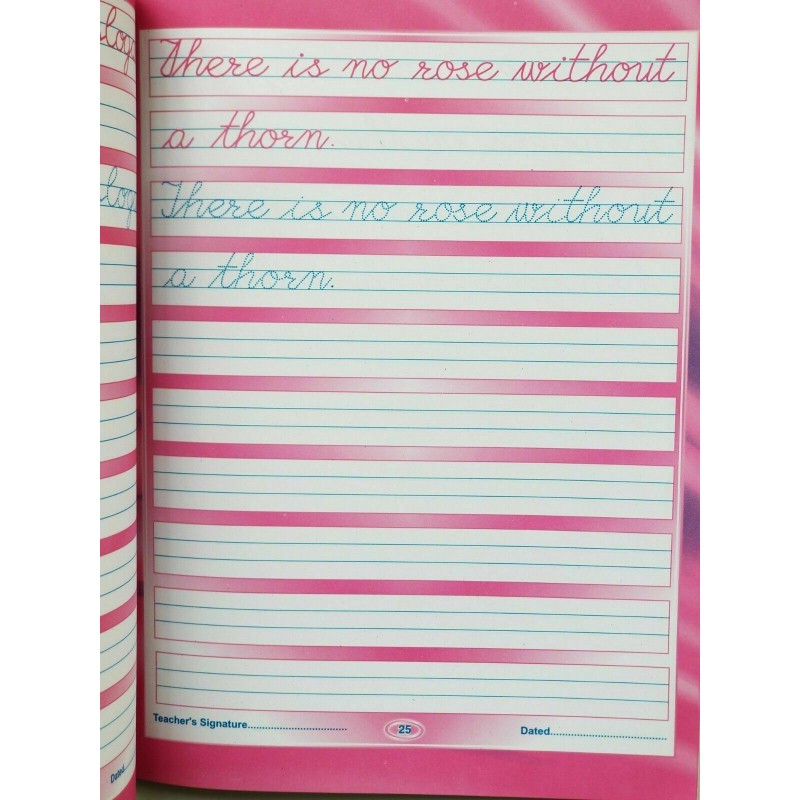 There is no rose without
a thorn.
There is no rose without
a thorn.
Teacher's Signature.................................. 25 Dated.......................................
log
log
Dated....